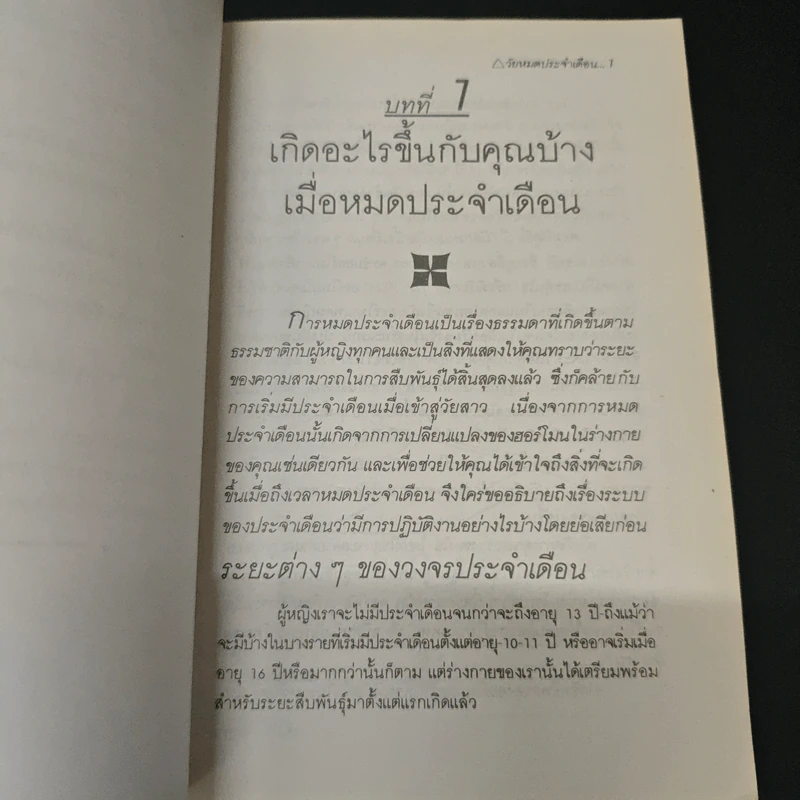 △วัยหมดประจำเดือน... 1
บทที่ 1
เกิดอะไรขึ้นกับคุณบ้าง
เมื่อหมดประจำเดือน
การหมดประจำเดือนเป็นเรื่องธรรมดาที่เกิดขึ้นตาม
ธรรมชาติกับผู้หญิงทุกคนและเป็นสิ่งที่แสดงให้คุณทราบว่าระยะ
ของความสามารถในการสืบพันธุ์ได้สิ้นสุดลงแล้ว ซึ่งก็คล้ายกับ
การเริ่มมีประจำเดือนเมื่อเข้าสู่วัยสาว เนื่องจากการหมด
ประจำเดือนนั้นเกิดจากการเปลี่ยนแปลงของฮอร์โมนในร่างกาย
ของคุณเช่นเดียวกัน และเพื่อช่วยให้คุณได้เข้าใจถึงสิ่งที่จะเกิด
ขึ้นเมื่อถึงเวลาหมดประจำเดือน จึงใคร่ขออธิบายถึงเรื่องระบบ
ของประจำเดือนว่ามีการปฏิบัติงานอย่างไรบ้างโดยย่อเสียก่อน
ระยะต่าง ๆ ของวงจรประจำเดือน
ผู้หญิงเราจะไม่มีประจำเดือนจนกว่าจะถึงอายุ 13 ปี-ถึงแม้ว่า
จะมีบ้างในบางรายที่เริ่มมีประจำเดือนตั้งแต่อายุ-10-11 ปี หรืออาจเริ่มเมื่อ
อายุ 16 ปีหรือมากกว่านั้นก็ตาม แต่ร่างกายของเรานั้นได้เตรียมพร้อม
สำหรับระยะสืบพันธุ์มาตั้งแต่แรกเกิดแล้ว